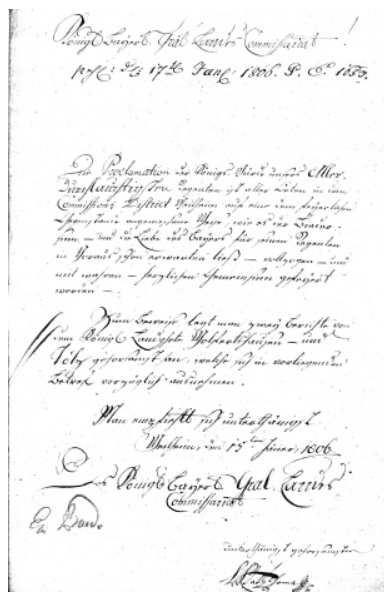 Königl. Bayers. Gral Landes Commissariat!
praes: d. 17ten Janr: 1806. P. C. 1853.
Die Proclamation der Königs Würde unsers Aller-
Durchlauchtigsten Regenten ist aller Orten in dem
Commissions District Weilheim auf eine dem feyerlichen
angemessene Weise, wie es der Bieder-
sinn – und die Liebe des Bayers für seinen Regenten
im Voraus schon erwarten ließ – vollzogen – und
mit wahren – herzlichen Gemeinsinn gefeyert
worden –.
Zum Beweise legt man zwey Berichte von
dem Königl. Landgerichte Wolfertshausen – und
Tölz gehorsamst an, welche sich in vorliegenden
Betreff vorzüglich ausnehmen.
Man empfiehlt sich unterthänigst
Weilheim, den 15ten Jäner, 1806
Des Königl. Bayers. Gral. Landes
Commissariat
unterthänigst gehorsamster